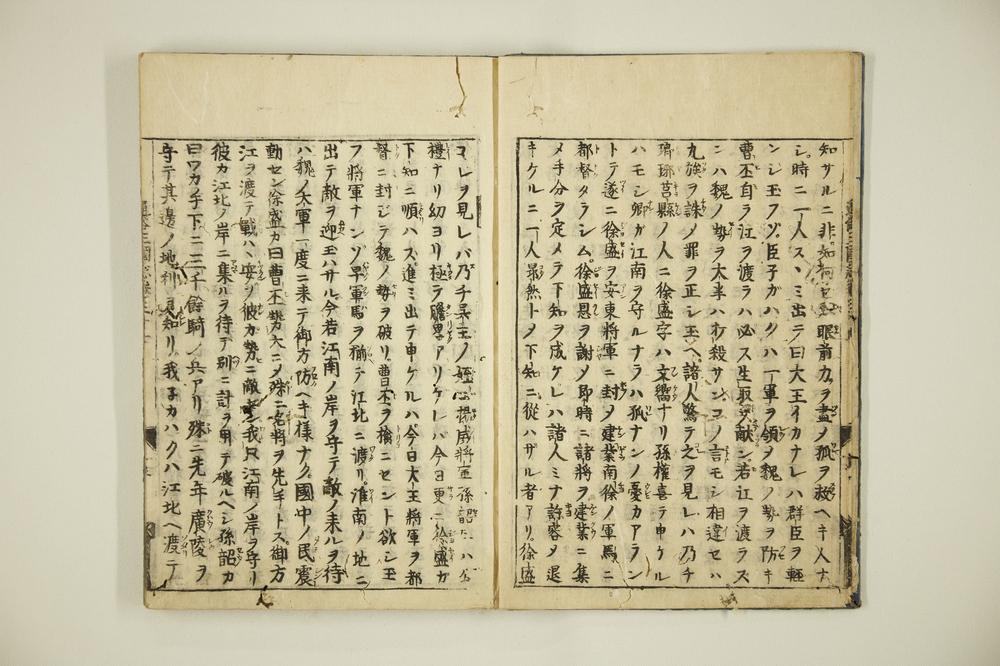 知サルニ非如何セン眼前力ヲ盡メ孤ヲ救ヘキ人ナ
シ時ニ一人スヽミ出テ曰大王イカナレハ群臣ヲ輕
ンシ玉フゾ臣子ガハクハ一軍ヲ領メ魏ノ勢ヲ防キ
曹丕自ラ江ヲ渡ラハ必ス生取メ献ン若江ヲ渡ラス
ンハ魏ノ勢ヲ太半ハ打殺サンコノ言モシ相違セハ
九族ヲ誅メ罪ヲ正シ玉ヘ諸人驚テ之ヲ見レハ乃チ
瑯琊莒縣ノ人ニ徐盛字ハ文嚮ナリ孫權喜テ申ケル
ハモシ卿ガ江南ヲ守ルナラハ孤ナンノ憂カアラン
トテ遂ニ徐盛ヲ安東將軍ニ封メ建業南徐ノ軍馬ニ
都督タラシム徐盛恩ヲ謝メ即時ニ諸將ヲ建業ニ集
メ手分ヲ定メテ下知ヲ成ケレハ諸人ミナ許容メ退
キケルニ一人昂然トメ下知ニ從ハザル者アリ徐盛
コレヲ見レバ乃チ吳王ノ姪揚威將軍孫韶
禮ナリ幼ヨリ極テ膽畧アリケレバ今日更ニ徐盛ガ
下知ニ順ハズ進ミ出テ申ケルハ今日大王將軍ヲ都
督ニ封ジテ魏ノ勢ヲ破リ曹丕ヲ擒ニセント欲シ玉
フ將軍ナンゾ早軍馬ヲ揃テ江北ニ渡リ淮南ノ地ニ
出テ敵ヲ迎玉ハサル今若江南ノ岸ヲ守テ敵ノ来ルヲ待
ハ魏ノ大軍一度ニ来テ御方防ヘキ様ナク國中ノ民震
動セン徐盛カ曰曹丕勢大ニメ殊ニ名將ヲ先手トス御方
江ヲ渡テ戰ハヽ安ソ彼カ勢ニ敵セン我只江南ノ岸ヲ守リ
彼カ江北ノ岸ニ集ルヲ待テ別ニ計ヲ用テ破ルヘシ孫韶カ
曰ワカ手下ニ三千餘騎ノ兵アリ殊ニ先年廣陵ヲ
守テ其邊ノ地利ヲ知リ我子カハクハ江北ヘ渡テ